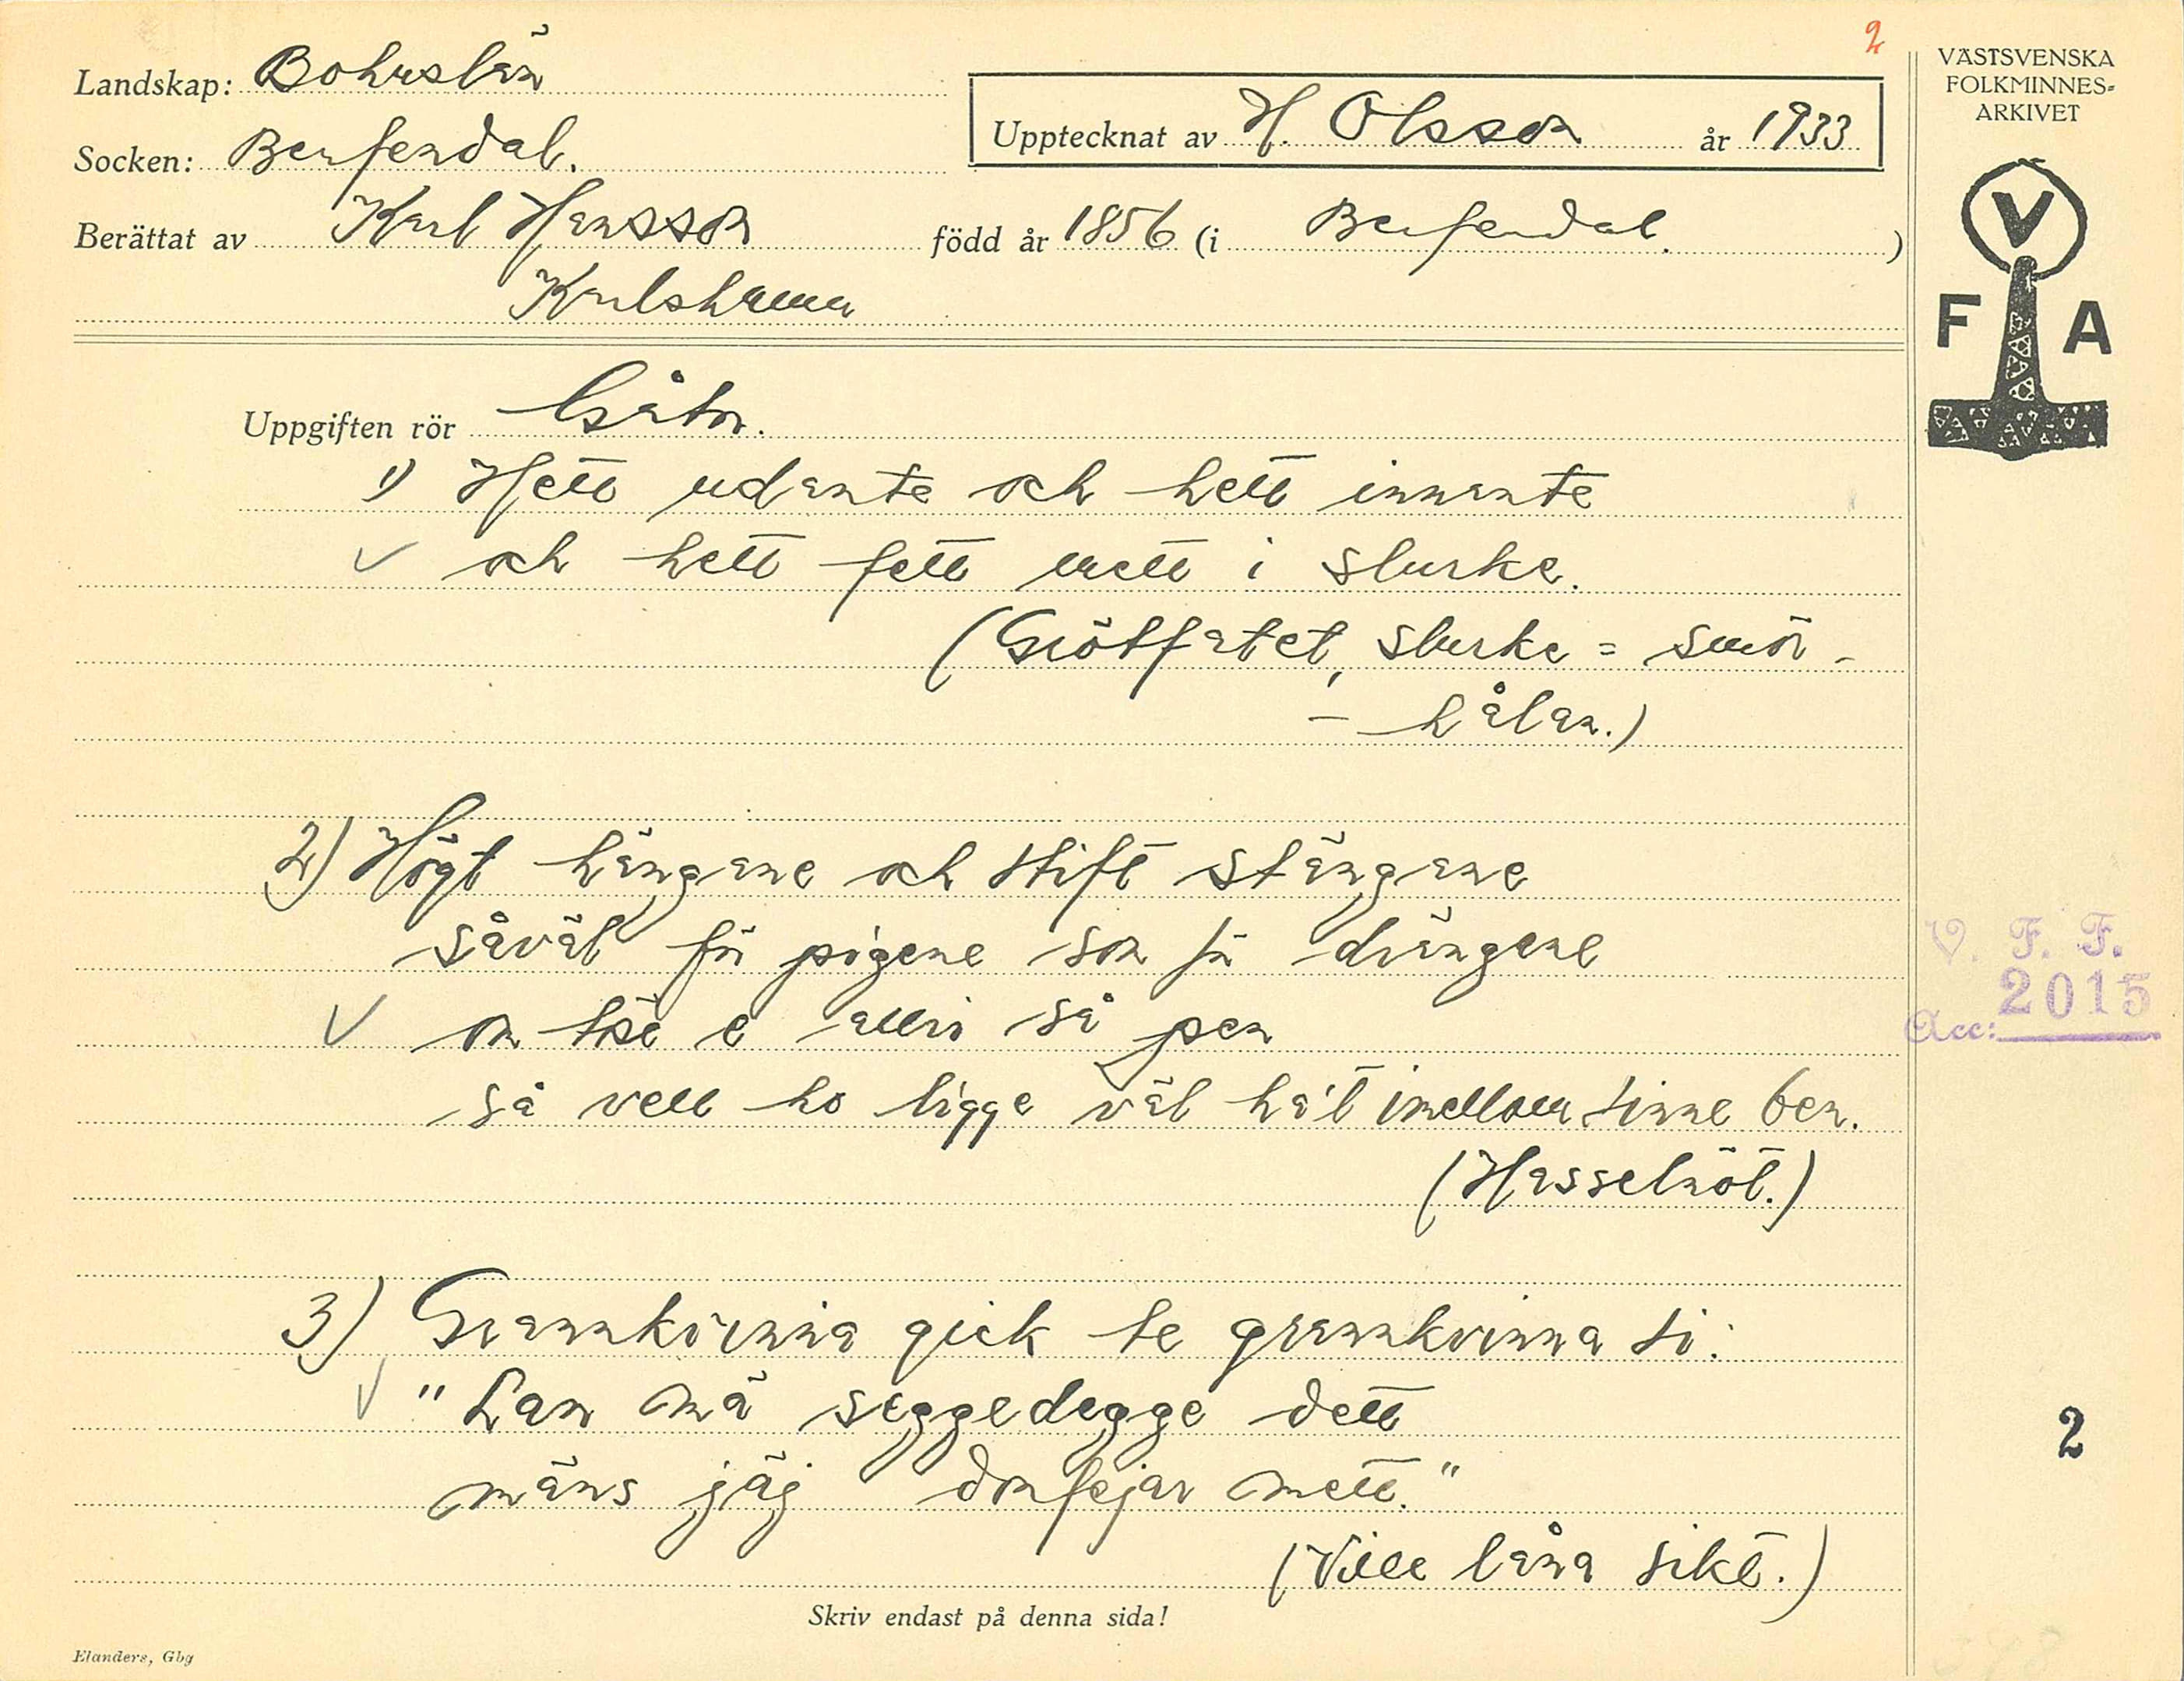 2
Landskap: Bohuslän
VÄSTSVENSKA
FOLKMINNES-
ARKIVET
Upptecknat av H. Olsson år 1933
Socken: Bärfendal.
Berättat av Karl Hansson född år 1856 (i Bärfendal.)
Karlshamn
V
F A
Uppgiften rör Gåtor.
1) Hett udante och hett innante
och hett fett mett i slurke.
(Grötfatet, slurke = smör-
- hålan.)
2) Högt hängane och stift stängane
såväl för pigene som för drängene
om töse e allri så pen
så vell ho ligge väl hat imellom sinne ben.
(Hasselnöt.)
V. F. F.
Acc: 2015
3) Grannkvinna gick te grannkvinna si:
"Lan mä seggedegge dett
mäns jäj dorfejar mett."
(Ville låna sikt.)
2
Skriv endast på denna sida!
Elanders, Gbg